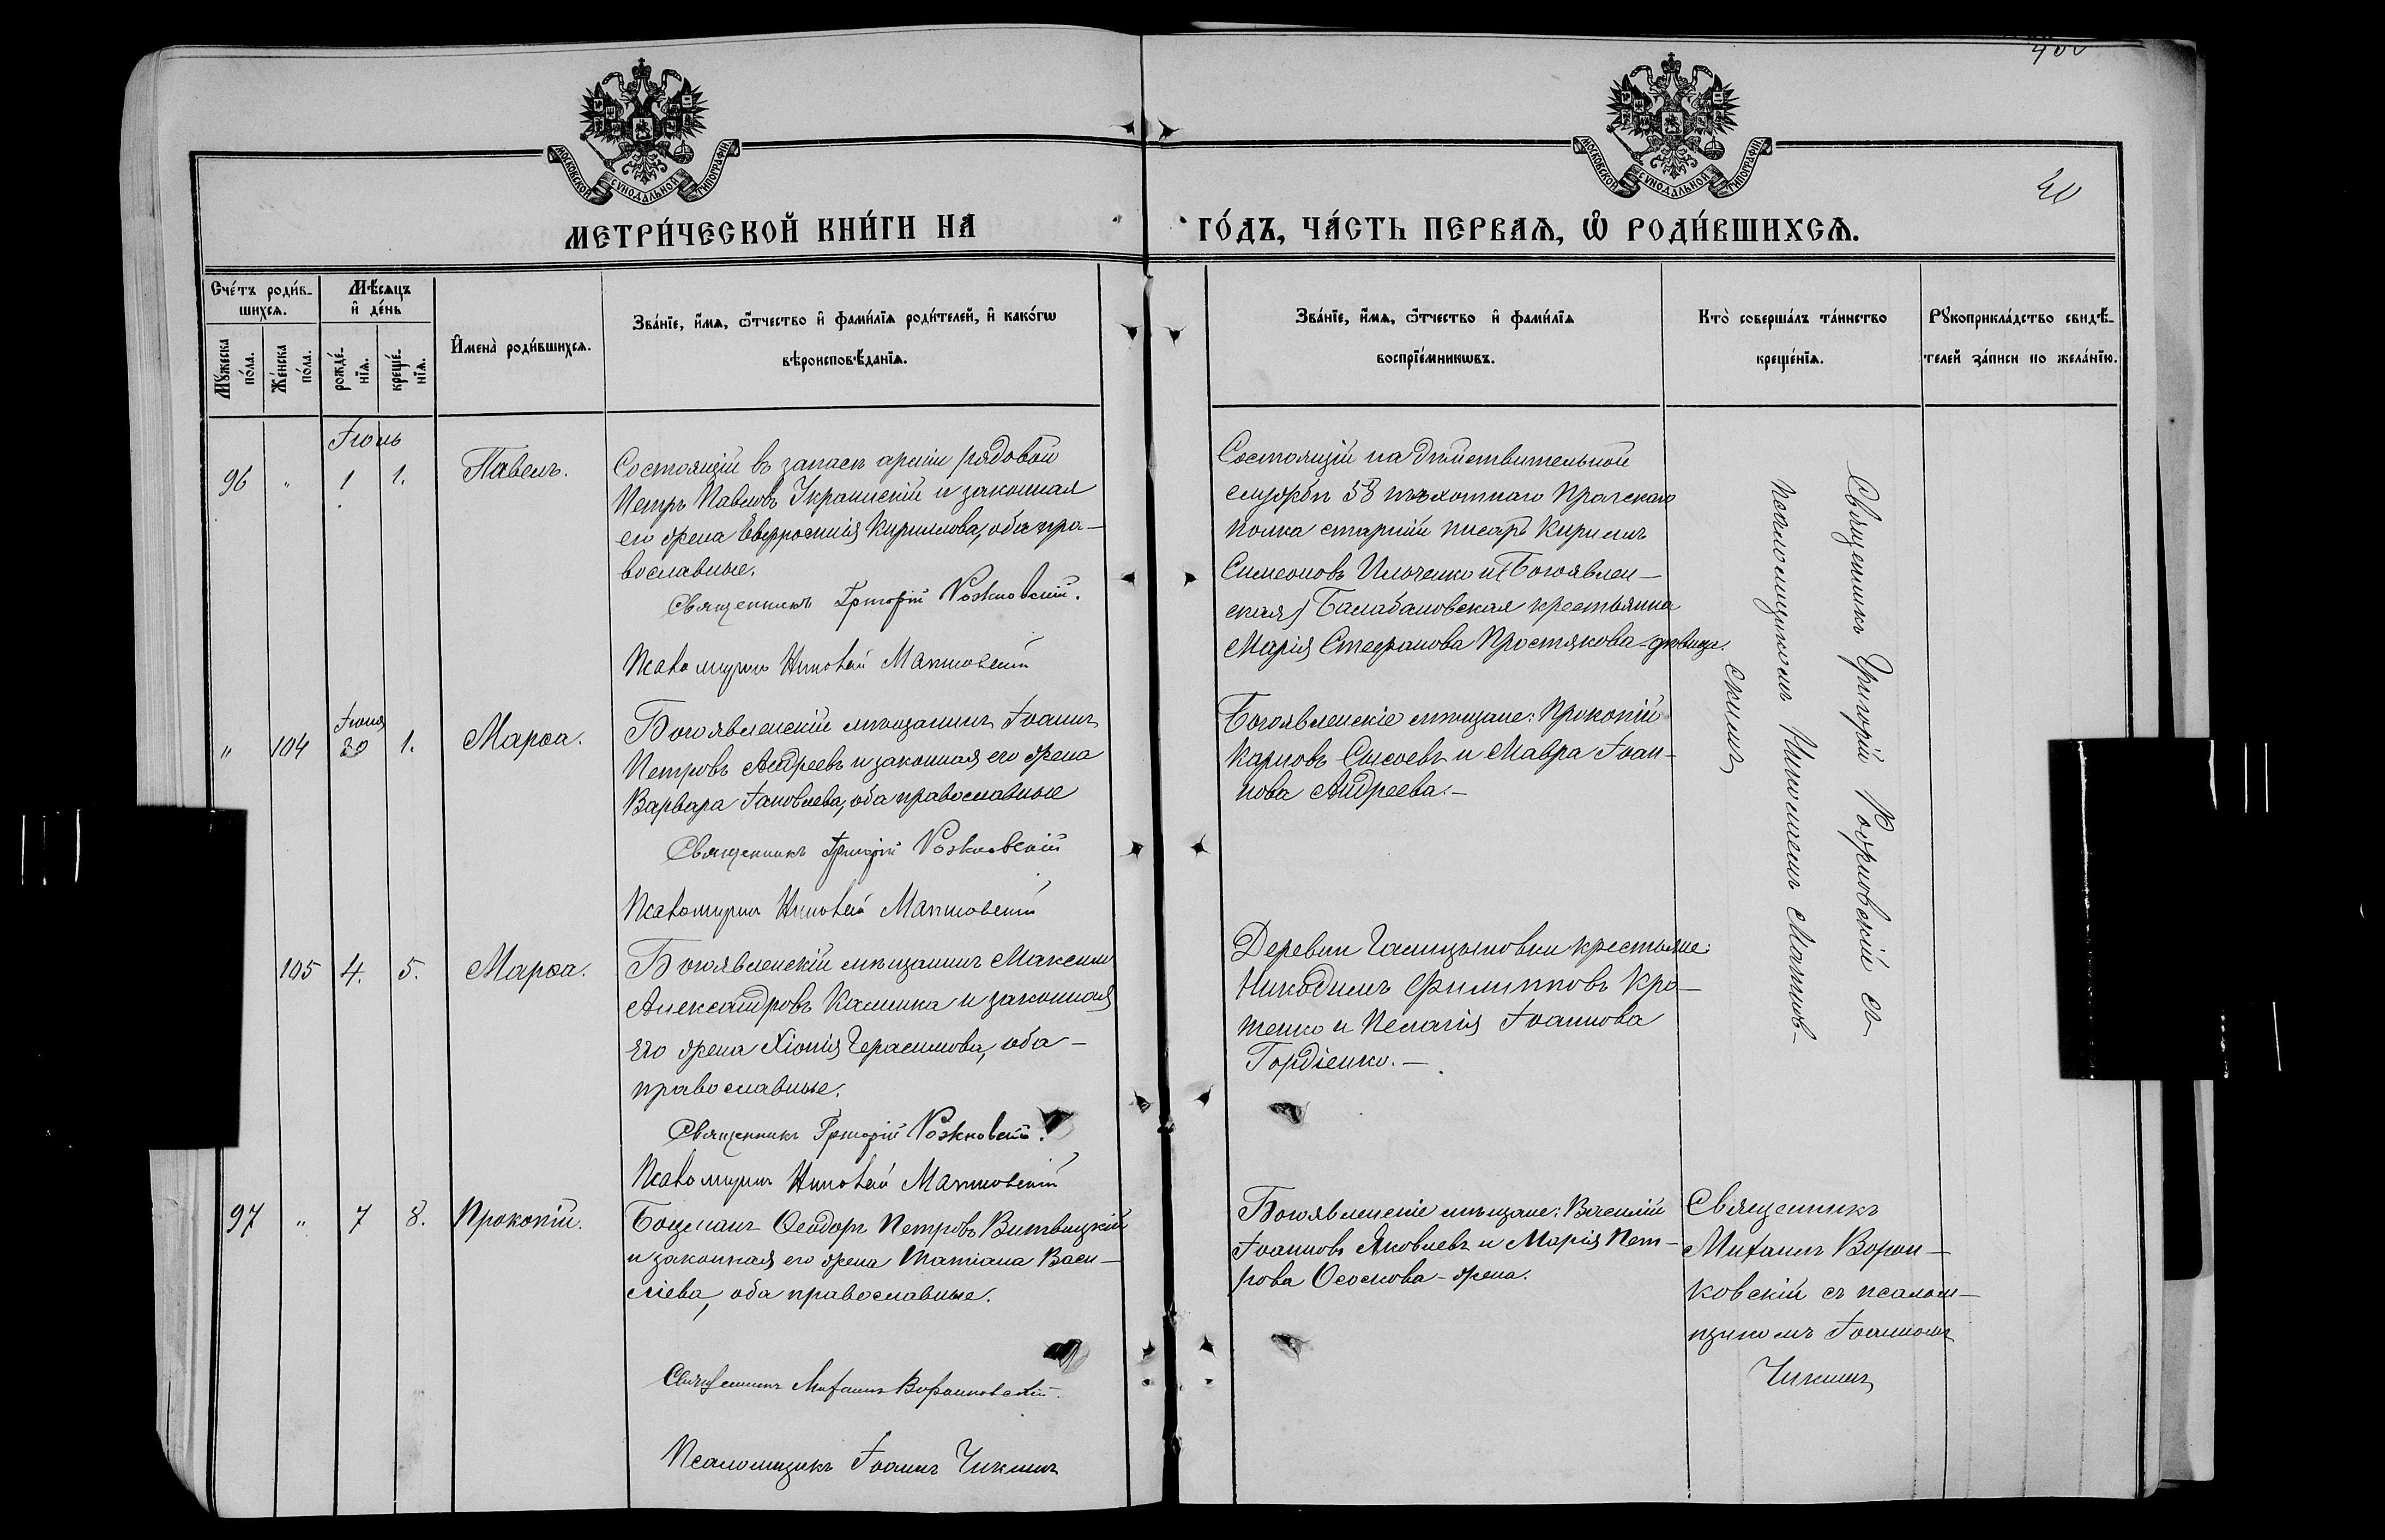 400
МОСКОВСКОЙ СУНОДАЛЬНОЙ ТИПОГРАФІИ
МОСКОВСКОЙ СУНОДАЛЬНОЙ ТИПОГРАФІИ
40
МЕТРИ́ЧЕСКОЙ КНИ́ГИ НА
ГО́ДЪ, ЧА́СТЬ ПЕРВАѦ, Ѡ РОДИ́ВШИХСѦ.
Сче́тъ роди́в-
шихсѧ.
Мꙋ́жеска
по́ла.
Же́нска
по́ла.
Мѣ́сѧцъ
и҆ де́нь
рожде́-
нїѧ.
креще́-
нїѧ.
И҆мена̀ роди́вшихсѧ.
Зва́нїе, и҆́мѧ, ѻ҆́тчество и҆ фами́лїѧ роди́телей, и҆ како́гѡ
вѣроисповѣ́данїѧ.
Зва́нїе, и҆́мѧ, ѻ҆́тчество и҆ фами́лїѧ
воспрїе́мникѡвъ.
Кто̀ соверша́лъ та́инство
креще́нїѧ.
Рꙋкоприкла́дство свидѣ́-
телей за́писи по жела́нїю.
Іюнь
96 " 1 1. Павелъ.
Состоящій въ запасѣ арміи рядовой
Петръ Павловъ Украинскій и законная
его жена Евфросинія Кириллова, оба пра-
вославные.
Священникъ Григорій Рожновскій.
Псаломщикъ Николай Матковскій
Состоящій на дѣйствительной
службѣ 58 пѣхотнаго Прагскаго
полка старшій писарь Кириллъ
Симеоновъ Ильченко и (Богоявлен-
ская) Балабановская крестьянка
Марія Стефанова Простякова-дѣвица.
Священникъ Григорій Рожновскій съ
псаломщикомъ Николаемъ Матков-
скимъ
Іюня
" 104 30 1. Марѳа.
Богоявленскій мѣщанинъ Іоаннъ
Петровъ Андреевъ и законная его жена
Варвара Іаковлева, оба православные
Священникъ Григорій Рожновскій
Псаломщикъ Николай Матковскій
Богоявленскіе мѣщане: Прокопій
Карповъ Сысоевъ и Мавра Іоан-
нова Андреева.-
105 4. 5. Марѳа.
Богоявленскій мѣщанинъ Максимъ
Александровъ Калшика и законная
его жена Хіонія Герасимова, оба -
православные.
Священникъ Григорій Рожновскій.
Псаломщикъ Николай Матковскій
Деревни Галицыновки крестьяне:
Никодимъ Филипповъ Кро-
тенко и Пелагія Іоаннова
Гордіенко.-
97 " 7 8. Прокопій.
Боцманъ Ѳеодоръ Петровъ Витвицкій
и законная его жена Татіана Васи-
ліева, оба православные.
Священникъ Михаилъ Воронковскій.
Псаломщикъ Іоаннъ Чикинъ
Богоявленскіе мѣщане: Василій
Іоанновъ Яковлевъ и Марія Пет-
рова Ососкова-жена.
Священникъ
Михаилъ Ворон-
ковскій съ псалом-
щикомъ Іоанномъ
Чикинъ